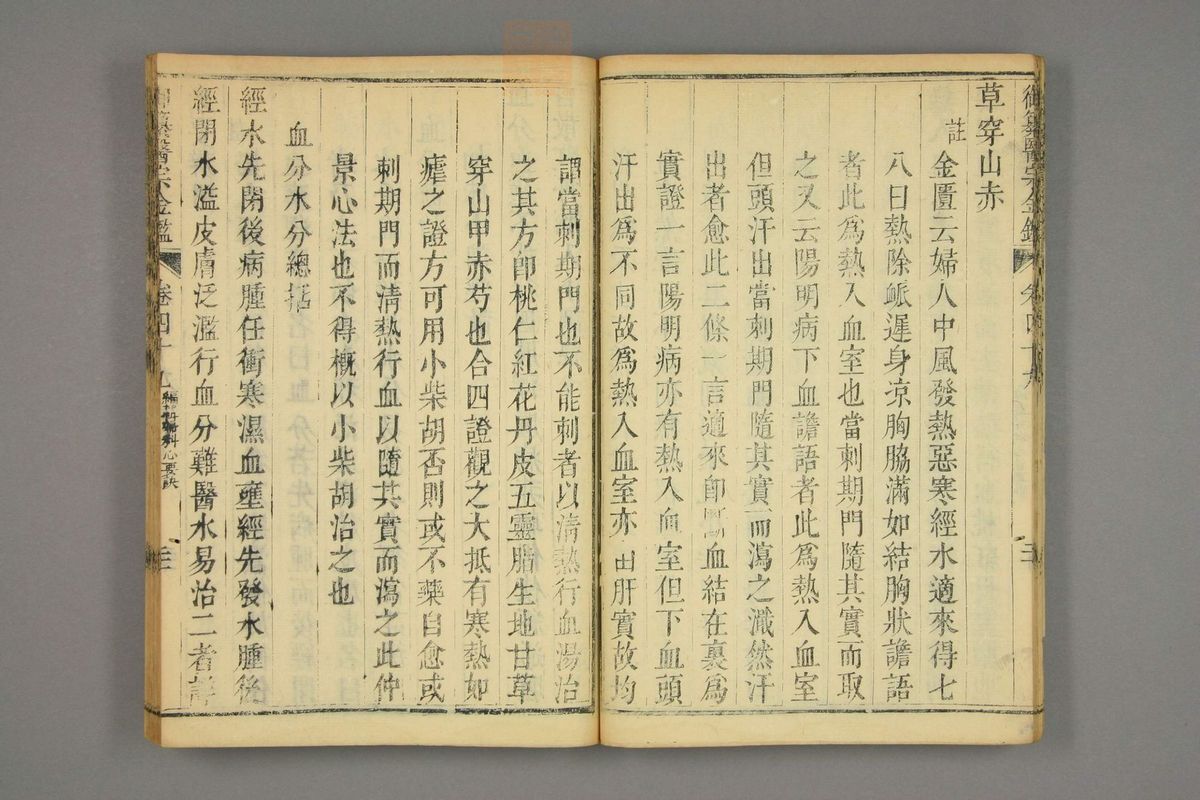 草穿山赤
註
金匱云婦人中風發熱惡寒經水適來得七
八日熱除䘑遲身凉胸脇滿如結胸狀譫語
者此爲熱入血室也當刺期門隨其實而取
之又云陽明病下血譫語者此爲熱入血室
但頭汗出當刺期門隨其實而瀉之濈然汗
出者愈此二條一言適來卽斷血結在裏爲
實證一言陽明病亦有熱入血室但下血頭
汗出爲不同故爲熱入血室亦由肝實故均
謂當刺期門也不能刺者以淸熱行血湯治
之其方卽桃仁紅花丹皮五靈脂生地甘草
穿山甲赤芍也合四證觀之大抵有寒熱如
瘧之證方可用小柴胡否則或不藥自愈或
刺期門而淸熱行血以隨其實而瀉之此仲
景心法也不得概以小柴胡治之也
血分水分總括
經水先閉後病腫任衝寒濕血壅經先發水腫後
經閉水溢皮膚泛濫行血分難醫水易治二者詳
御纂醫宗金鑑
卷四十九
編輯婦科心要訣